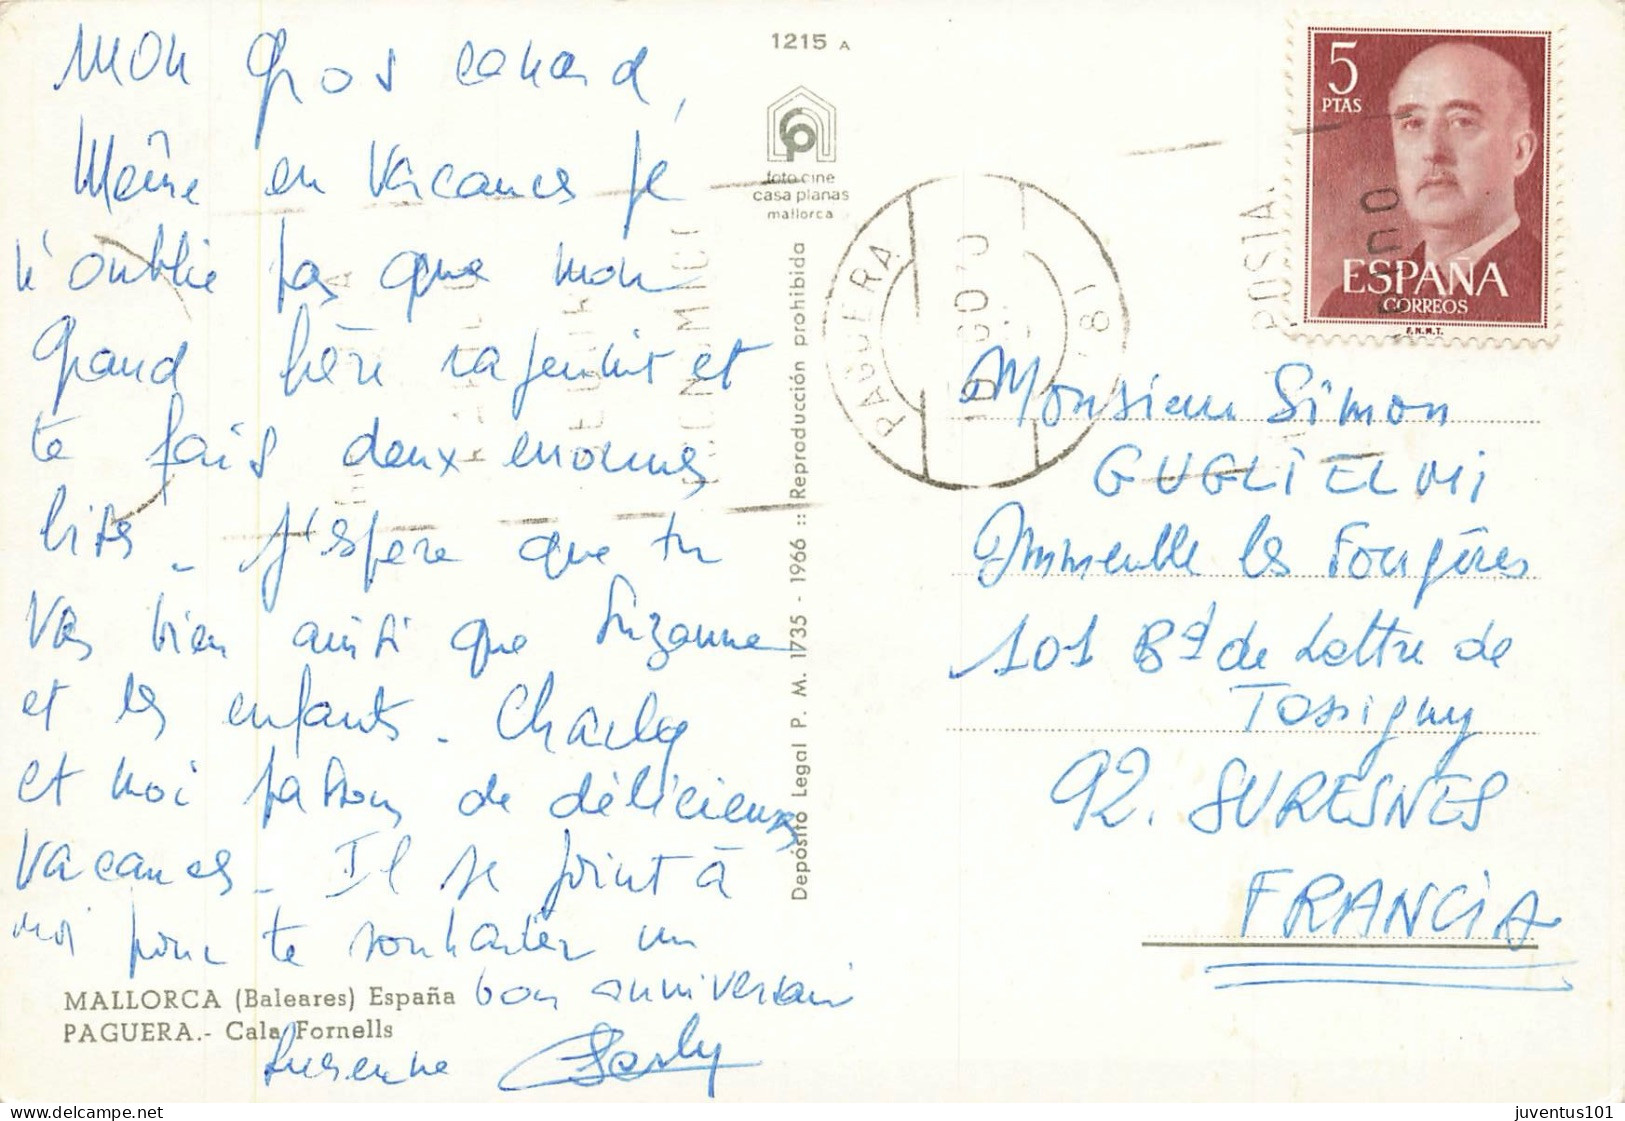 Mon gros canard,
Même en vacances je
n'oublie pas que mon
grand frère rajeunit et
te fais deux enormes
bises - J'espère que tu
vas bien ainsi que Suzanne
et les enfants - Charly
et moi passons de délicieuses
vacances - Il se joint à
moi pour te souhaiter un
bon anniversaire
Charly
1215 A
foto cine
casa planas
mallorca
Depósito Legal P. M. 1735 - 1966 :: Reproducción prohibida
MALLORCA (Baleares) España
PAGUERA.- Cala Fornells
PAGUERA
5
PTAS
ESPAÑA
CORREOS
F.N.M.T.
Monsieur Simon
GUGLIELMI
Immeuble les Fougères
101 Bd de Lattre de
Tassigny
92. SURESNES
FRANCIA
juventus101